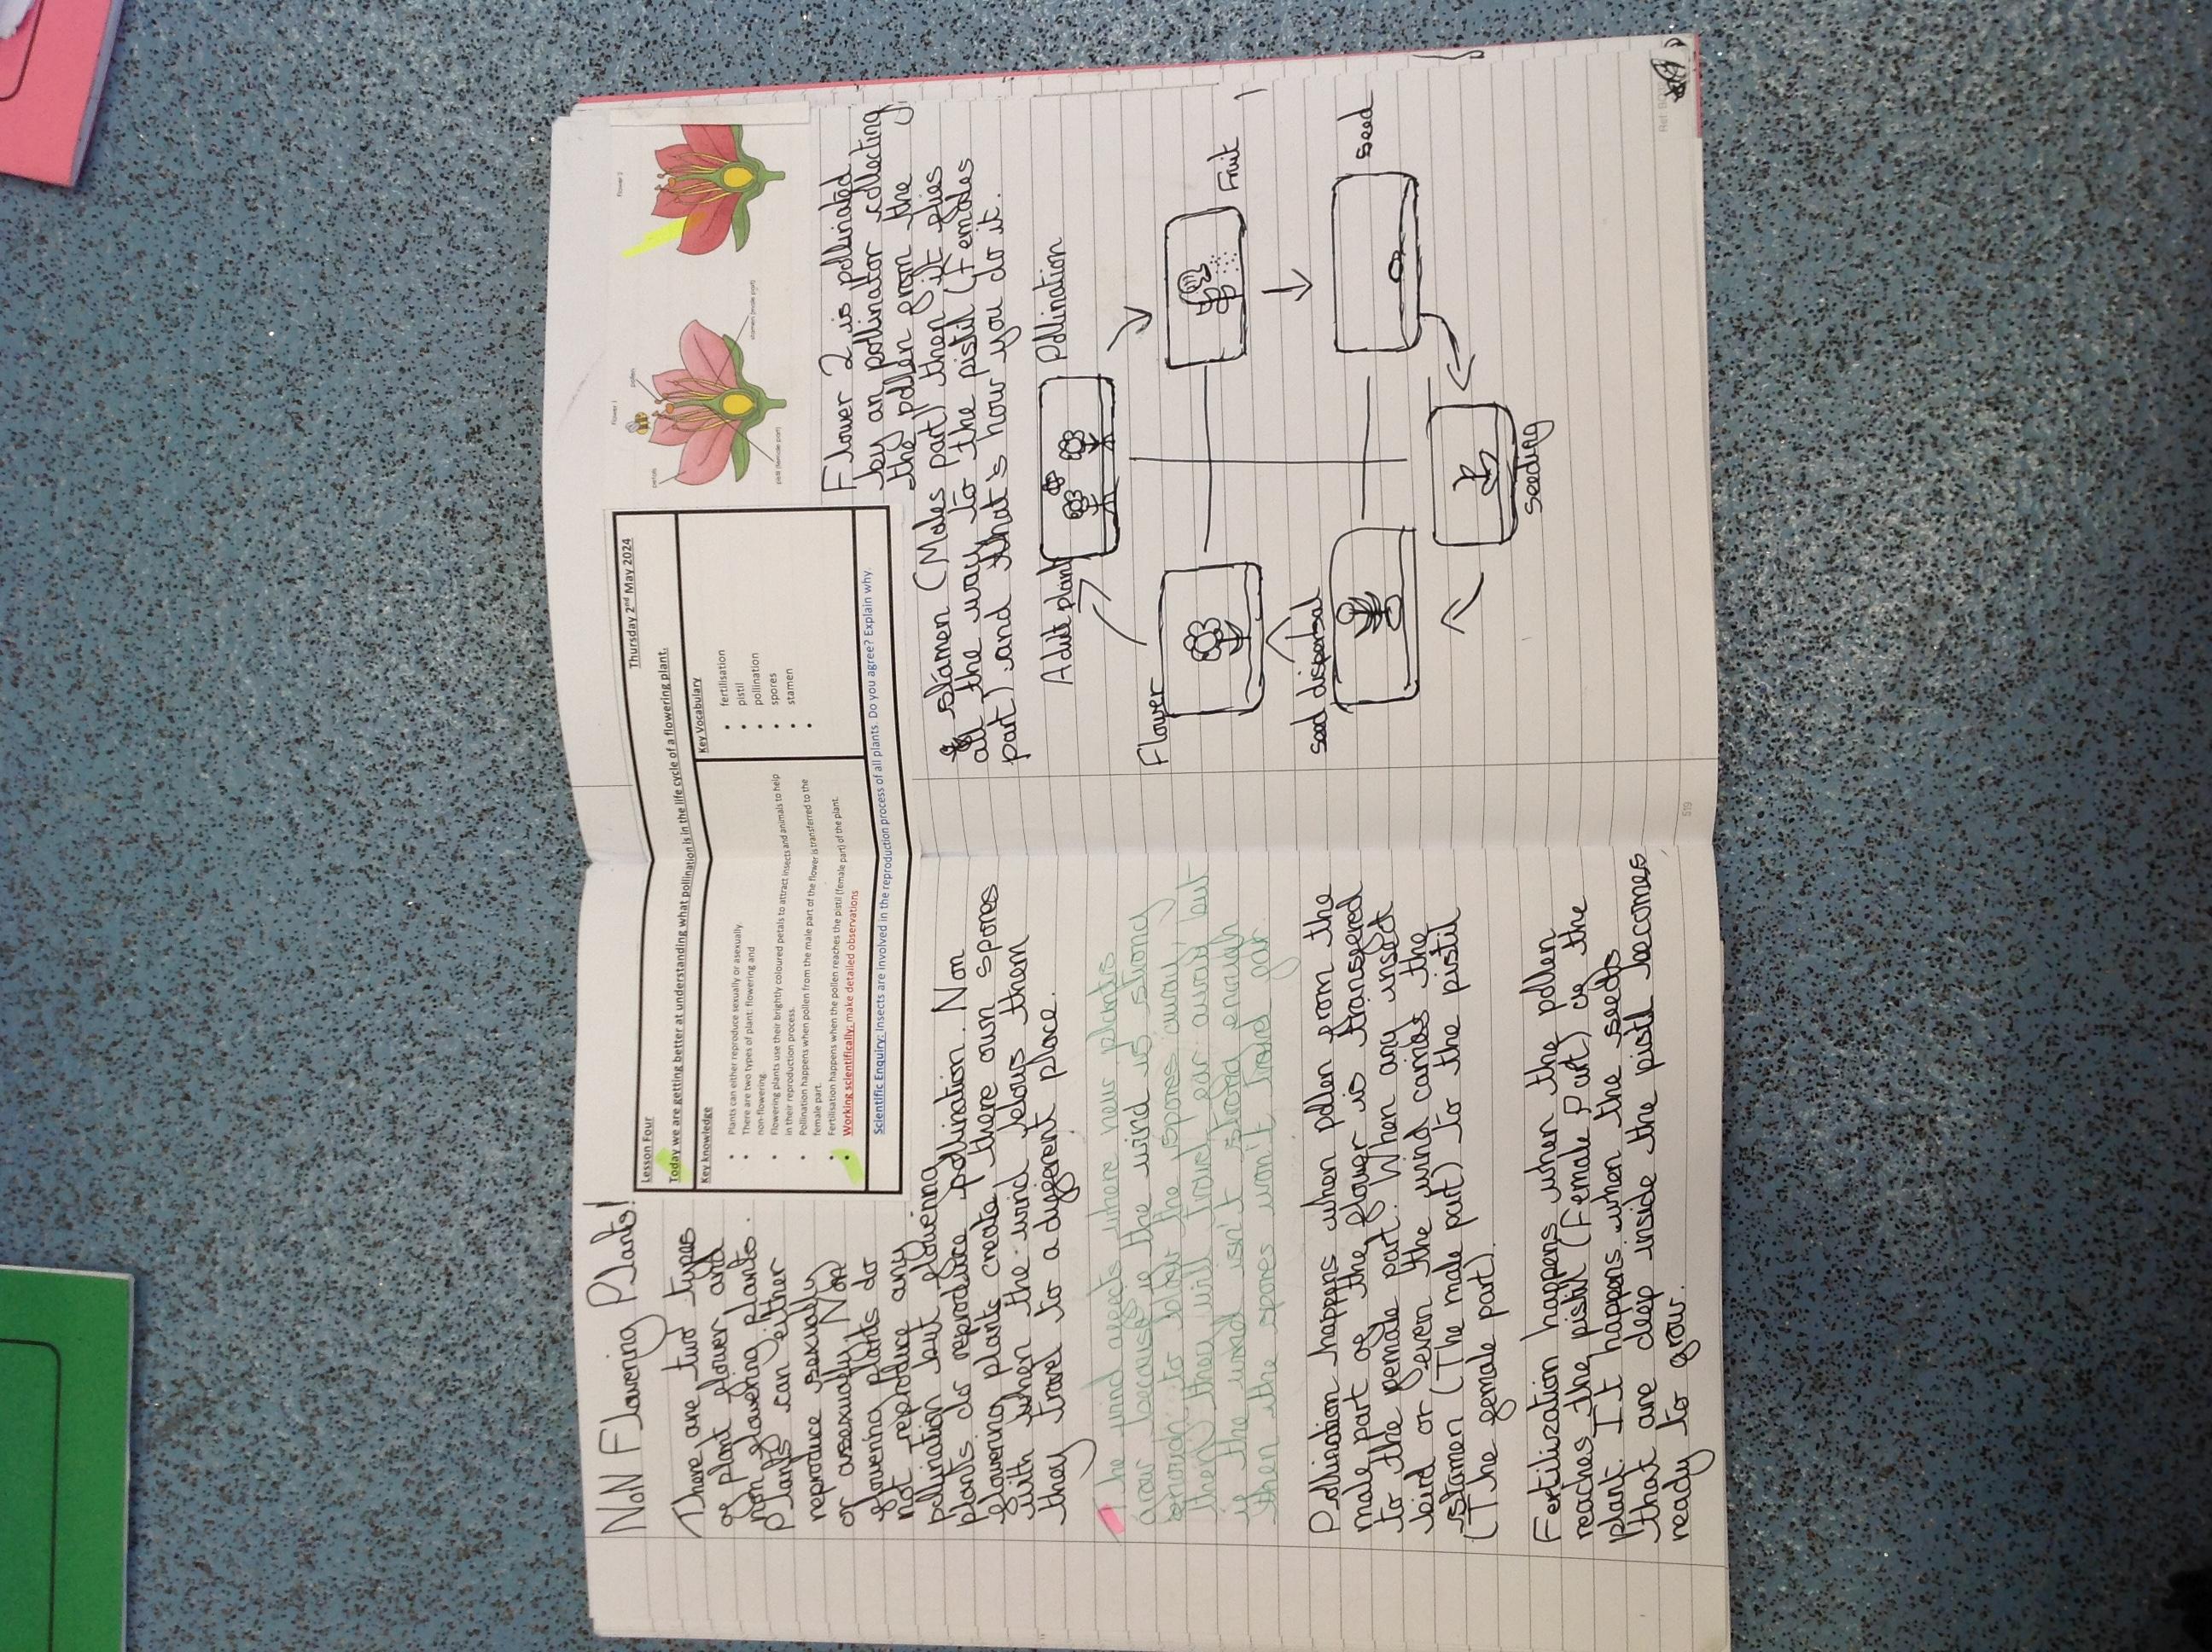 Non Flowering Plants!
There are two types
of plant flower and
non flowering plants.
Plants can either
reproduce sexually
or asexually. Non
flowering plants do
not reproduce any
pollination but flowering
plants do reproduce pollination. Non
flowering plants create there own spores
with when the wind blows them
they travel to a different place.
The wind afects where new plants
grow because if the wind is strong
enough to blow the spores away,
then they will travel far away but
if the wind isn't strong enough
then the spores won't travel far
Pollination happens when pollen from the
male part of the flower is transfered
to the female part. When any insect
bird or even the wind carries the
stamen (The male part) to the pistil
(The female part).
Fertilization happens when the pollen
reaches the pistil (Female Part) of the
plant. It happens when the seeds
that are deep inside the pistil becomes
ready to grow.
Lesson Four
Thursday 2nd May 2024
Today we are getting better at understanding what pollination is in the life cycle of a flowering plant.
Key knowledge
• Plants can either reproduce sexually or asexually.
• There are two types of plant: flowering and
non-flowering.
• Flowering plants use their brightly coloured petals to attract insects and animals to help
in their reproduction process.
• Pollination happens when pollen from the male part of the flower is transferred to the
female part.
• Fertilisation happens when the pollen reaches the pistil (female part) of the plant.
• Working scientifically: make detailed observations
Key Vocabulary
• fertilisation
• pistil
• pollination
• spores
• stamen
•
Scientific Enquiry: Insects are involved in the reproduction process of all plants. Do you agree? Explain why.
Flower 1
Flower 2
petals
pollen
pistil (female part)
stamen (male part)
Flower 2 is pollinated
by an pollinator collecting
the pollen from the
stamen (Males part) then it flies
all the way to the pistil (Females
part). and that's how you do it.
Adult plant
Pollination
Flower
Fruit
Seed dispersal
seed
seeding
519